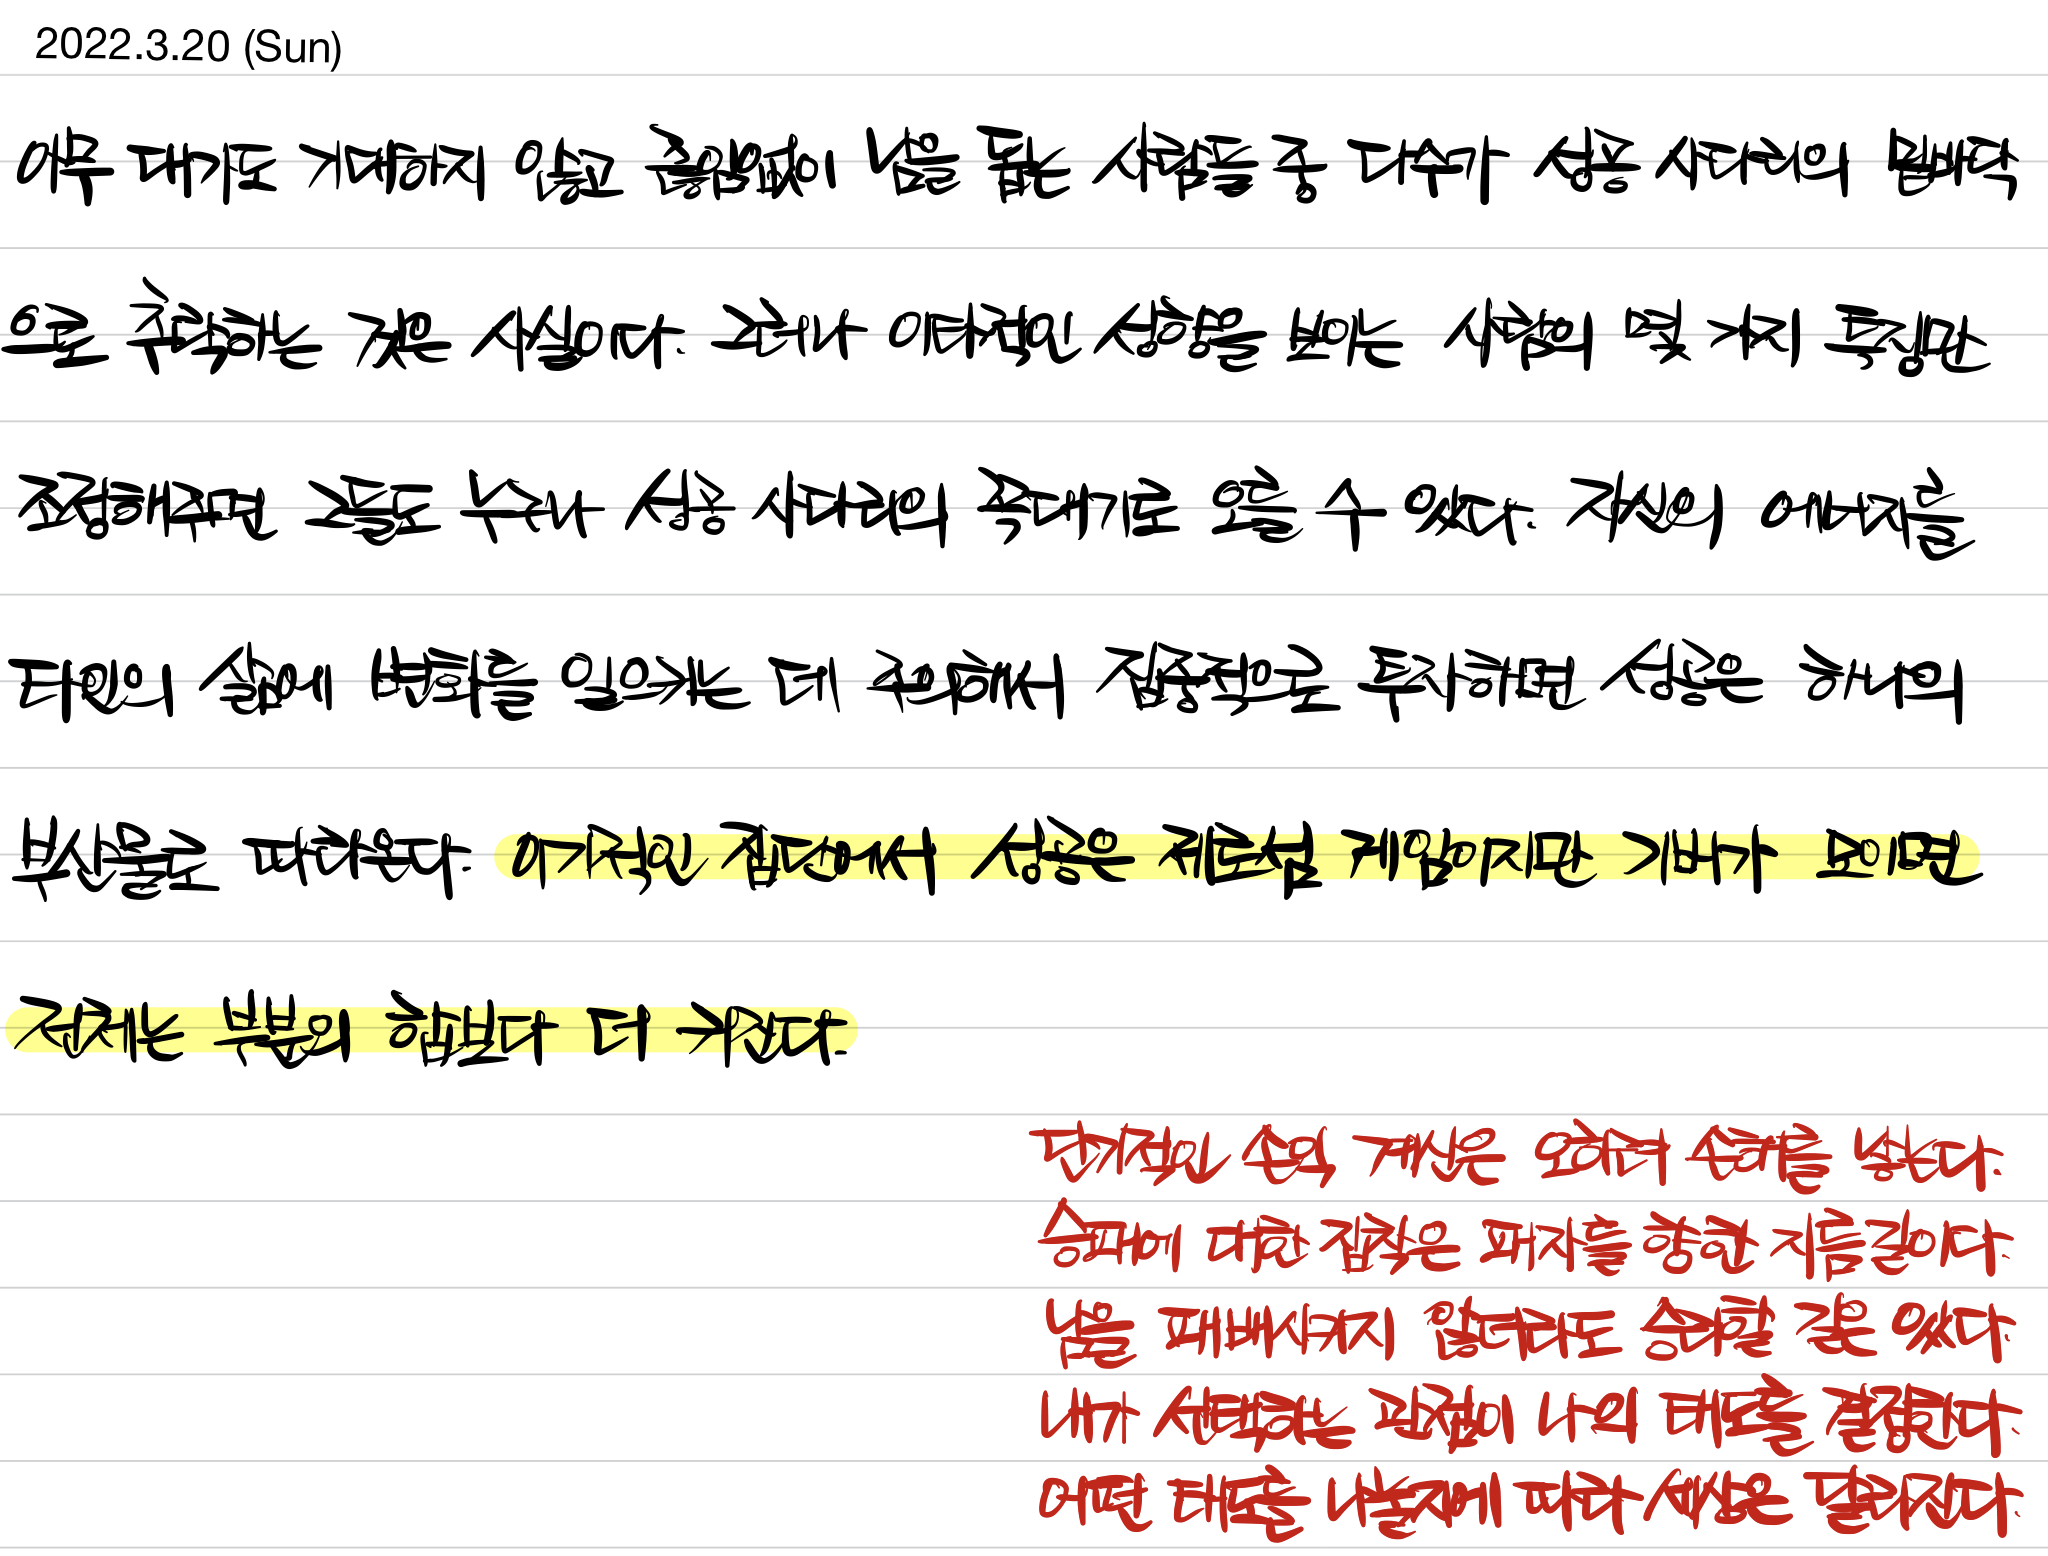 2022.3.20 (Sun)
아무 대가도 기대하지 않고 끊임없이 남을 돕는 사람들 중 다수가 성공 사다리의 밑바닥
으로 추락하는 것은 사실이다. 그러나 이타적인 성향을 보이는 사람의 몇 가지 특징만
조정해주면 그들도 누구나 성공 사다리의 꼭대기로 오를 수 있다. 자신의 에너지를
타인의 삶에 변화를 일으키는 데 주의해서 집중적으로 투자하면 성공은 하나의
부산물로 따라온다. 이기적인 집단에서 성공은 제로섬 게임이지만 기버가 모이면
전체는 부분의 합보다 더 커진다.
단기적인 손익 계산은 오히려 손해를 낳는다.
승패에 대한 집착은 패자를 향한 지름길이다.
남을 패배시키지 않더라도 승리할 길은 있다.
내가 선택하는 관점이 나의 태도를 결정한다.
어떤 태도를 나눌지에 따라 세상은 달라진다.